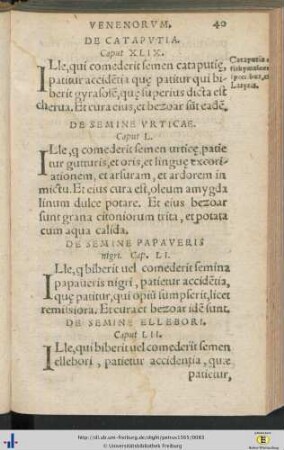 VENENORVM. 40
DE CATAPVTIA.
Caput XLIX.
ILle, qui comederit semen cataputię,
patitur accidẽtia quę patitur qui bi-
berit gyrasolẽ, quę superius dicta est
cherua. Et cura eius, et bezoar sũt eadẽ.
Cataputia e-
DE SEMINE VRTICAE.
Caput L.
ILle, q comederit semen urticę, patie
tur gutturis, et oris, et linguę excori-
ationem, et arsuram, et ardorem in
mictu. Et eius cura est, oleum amygda
linum dulce potare. Et eius bezoar
sunt grana citoniorum trita, et potata
cum aqua calida.
DE SEMINE PAPAVERIS
nigri. Cap. LI.
ILle, q biberit uel comederit semina
papaueris nigri, patietur accidẽtia,
quę patitur, qui opiũ sumpserit, licet
remissiora. Et cura et bezoar idẽ sunt.
DE SEMINE ELLEBORI.
Caput LII.
ILle, qui biberit uel comederit semen
ellebori, patietur accidentia, quæ
patietur,
http://dl.ub.uni-freiburg.de/diglit/petrus1563/0083
© Universitätsbibliothek Freiburg